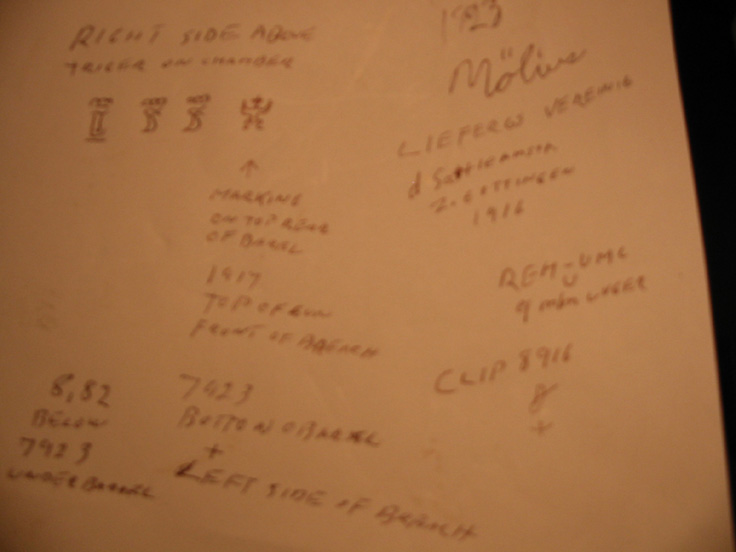 RIGHT SIDE ABOVE
TRIGER ON CHAMBER
I S S
↑
MARKING
ON TOP REAR
OF BAREL
1917
TOP OF GUN
FRONT OF BREACH
8,82
BELOW
7923
UNDER BARREL
7923
BOTTOM OF BARREL
+
LEFT SIDE OF BREACH
1923
LIEFERGS VEREINIG
d Sattlerinn
z. GOTTINGEN
1916
REM-UMC
9 mm LUGER
CLIP 8916
+